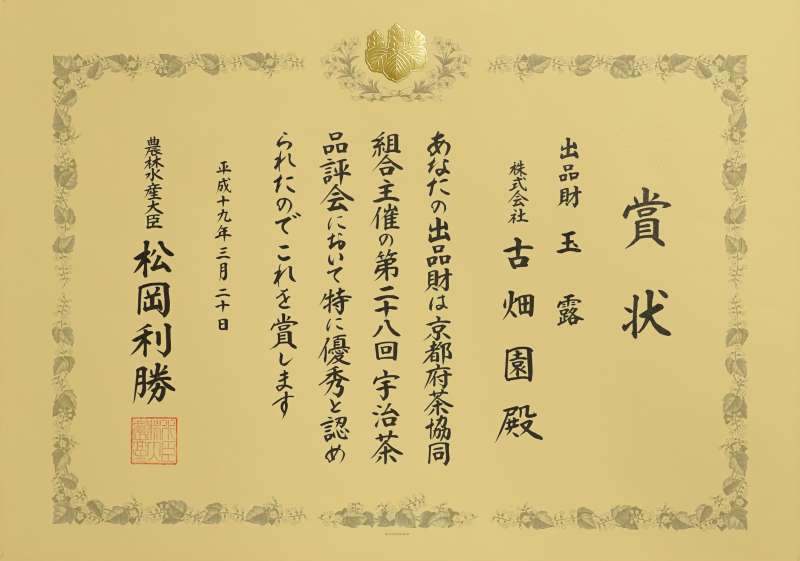 賞状
出品財 玉露
株式会社 古畑園殿
あなたの出品財は京都府茶協同
組合主催の第二十八回宇治茶
品評会において特に優秀と認め
られたのでこれを賞します
平成十九年三月二十日
農林水産大臣 松岡利勝